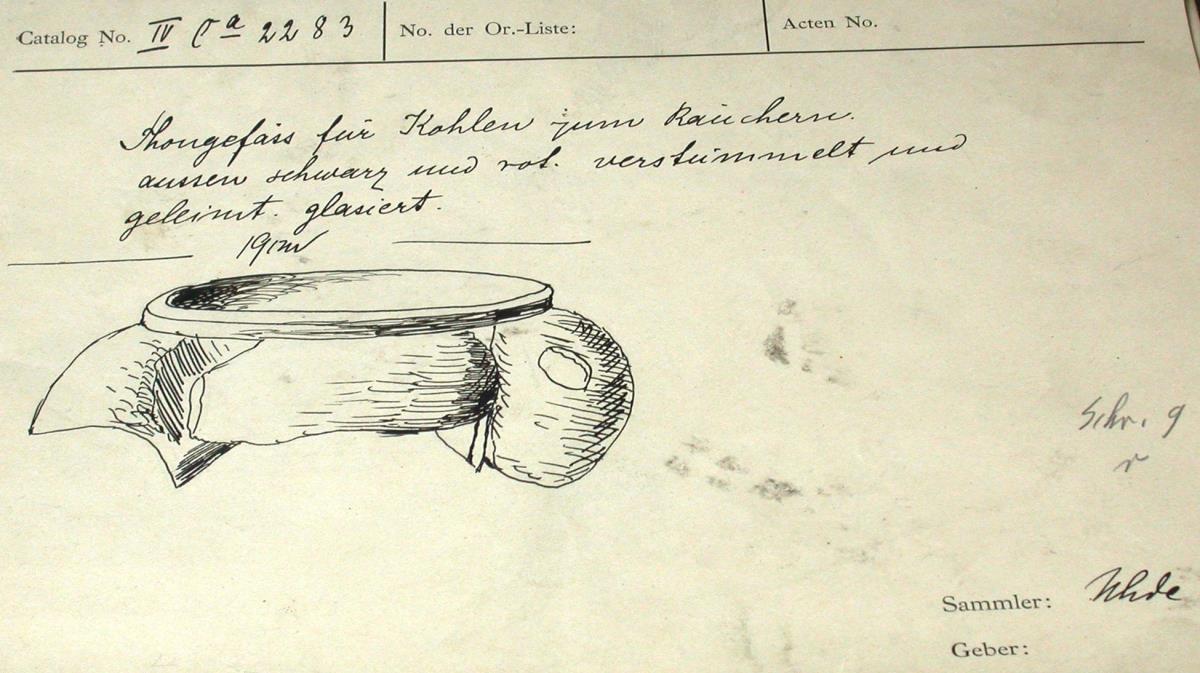 Catalog No. IV Ca 2283 No. der Or.-Liste: Acten No.
Thongefäss für Kohlen zum Räuchern.
aussen schwarz und rot. verstümmelt und
geleimt. glasiert.
19cm
Schr. 9
r
Sammler: Uhde
Geber: